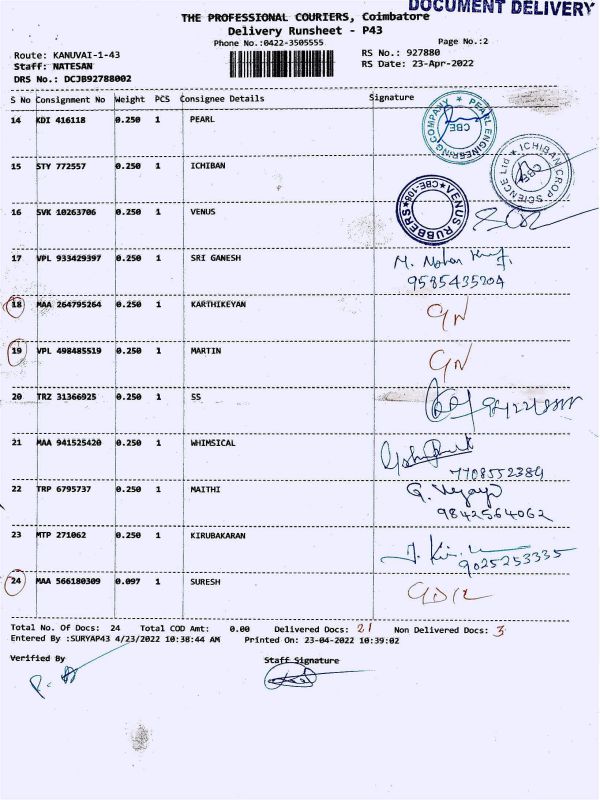 DOCUMENT DELIVERY
THE PROFESSIONAL COURIERS, Coimbatore
Delivery Runsheet - P43
Phone No.:0422-3505555
Page No.:2
Route: KANUVAI-1-43
RS No.: 927880
Staff: NATESAN
RS Date: 23-Apr-2022
DRS No.: DCJB92788002
S No Consignment No Weight PCS Consignee Details Signature
14 KDI 416118 0.250 1 PEARL
PEARL ENGINEERING COMPANY * CBE
15 STY 772557 0.250 1 ICHIBAN
ICHIBAN CROP SCIENCE Ltd * CBE
16 SVK 10263706 0.250 1 VENUS
VENUS RUBBERS * CBE-108 *
17 VPL 933429397 0.250 1 SRI GANESH
M. Mohan
9585435204
18 MAA 264795264 0.250 1 KARTHIKEYAN
19 VPL 498485519 0.250 1 MARTIN
20 TRZ 31366925 0.250 1 SS
21 MAA 941525420 0.250 1 WHIMSICAL
7708552384
22 TRP 6795737 0.250 1 MAITHI
9842564062
23 MTP 271062 0.250 1 KIRUBAKARAN
9025253335
24 MAA 566180309 0.097 1 SURESH
Total No. Of Docs: 24 Total COD Amt: 0.00 Delivered Docs: 21 Non Delivered Docs: 3
Entered By :SURYAP43 4/23/2022 10:38:44 AM Printed On: 23-04-2022 10:39:02
Verified By Staff Signature